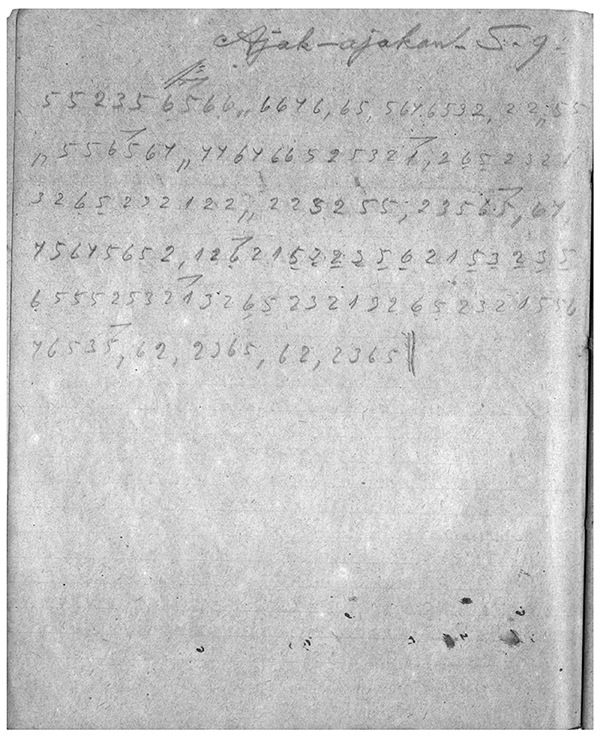 Ajak-ajakan S. 9.
5 5 2 3 5 6 6 5 6 6 ,, 6 6 7 6 , 6 5 , 5 6 7 6 5 3 2 , 2 2 ,, 5 5
,, 5 5 6 5 6 7 ,, 7 7 6 7 6 6 5 2 5 3 2 1 , 2 6 5 2 3 2 1
3 2 6 5 2 3 2 1 2 2 ,, 2 2 3 2 5 5 , 2 3 5 6 5 , 6 7 ,
7 5 6 7 5 6 5 2 , 1 2 6 2 1 5 2 2 3 5 6 2 1 5 3 2 3 5
6 5 5 5 2 5 3 2 1 3 2 6 5 2 3 2 1 2 2 6 5 2 3 2 1 5 5 6
7 6 5 3 5 , 6 2 , 2 3 6 5 , 6 2 , 2 3 6 5 ||